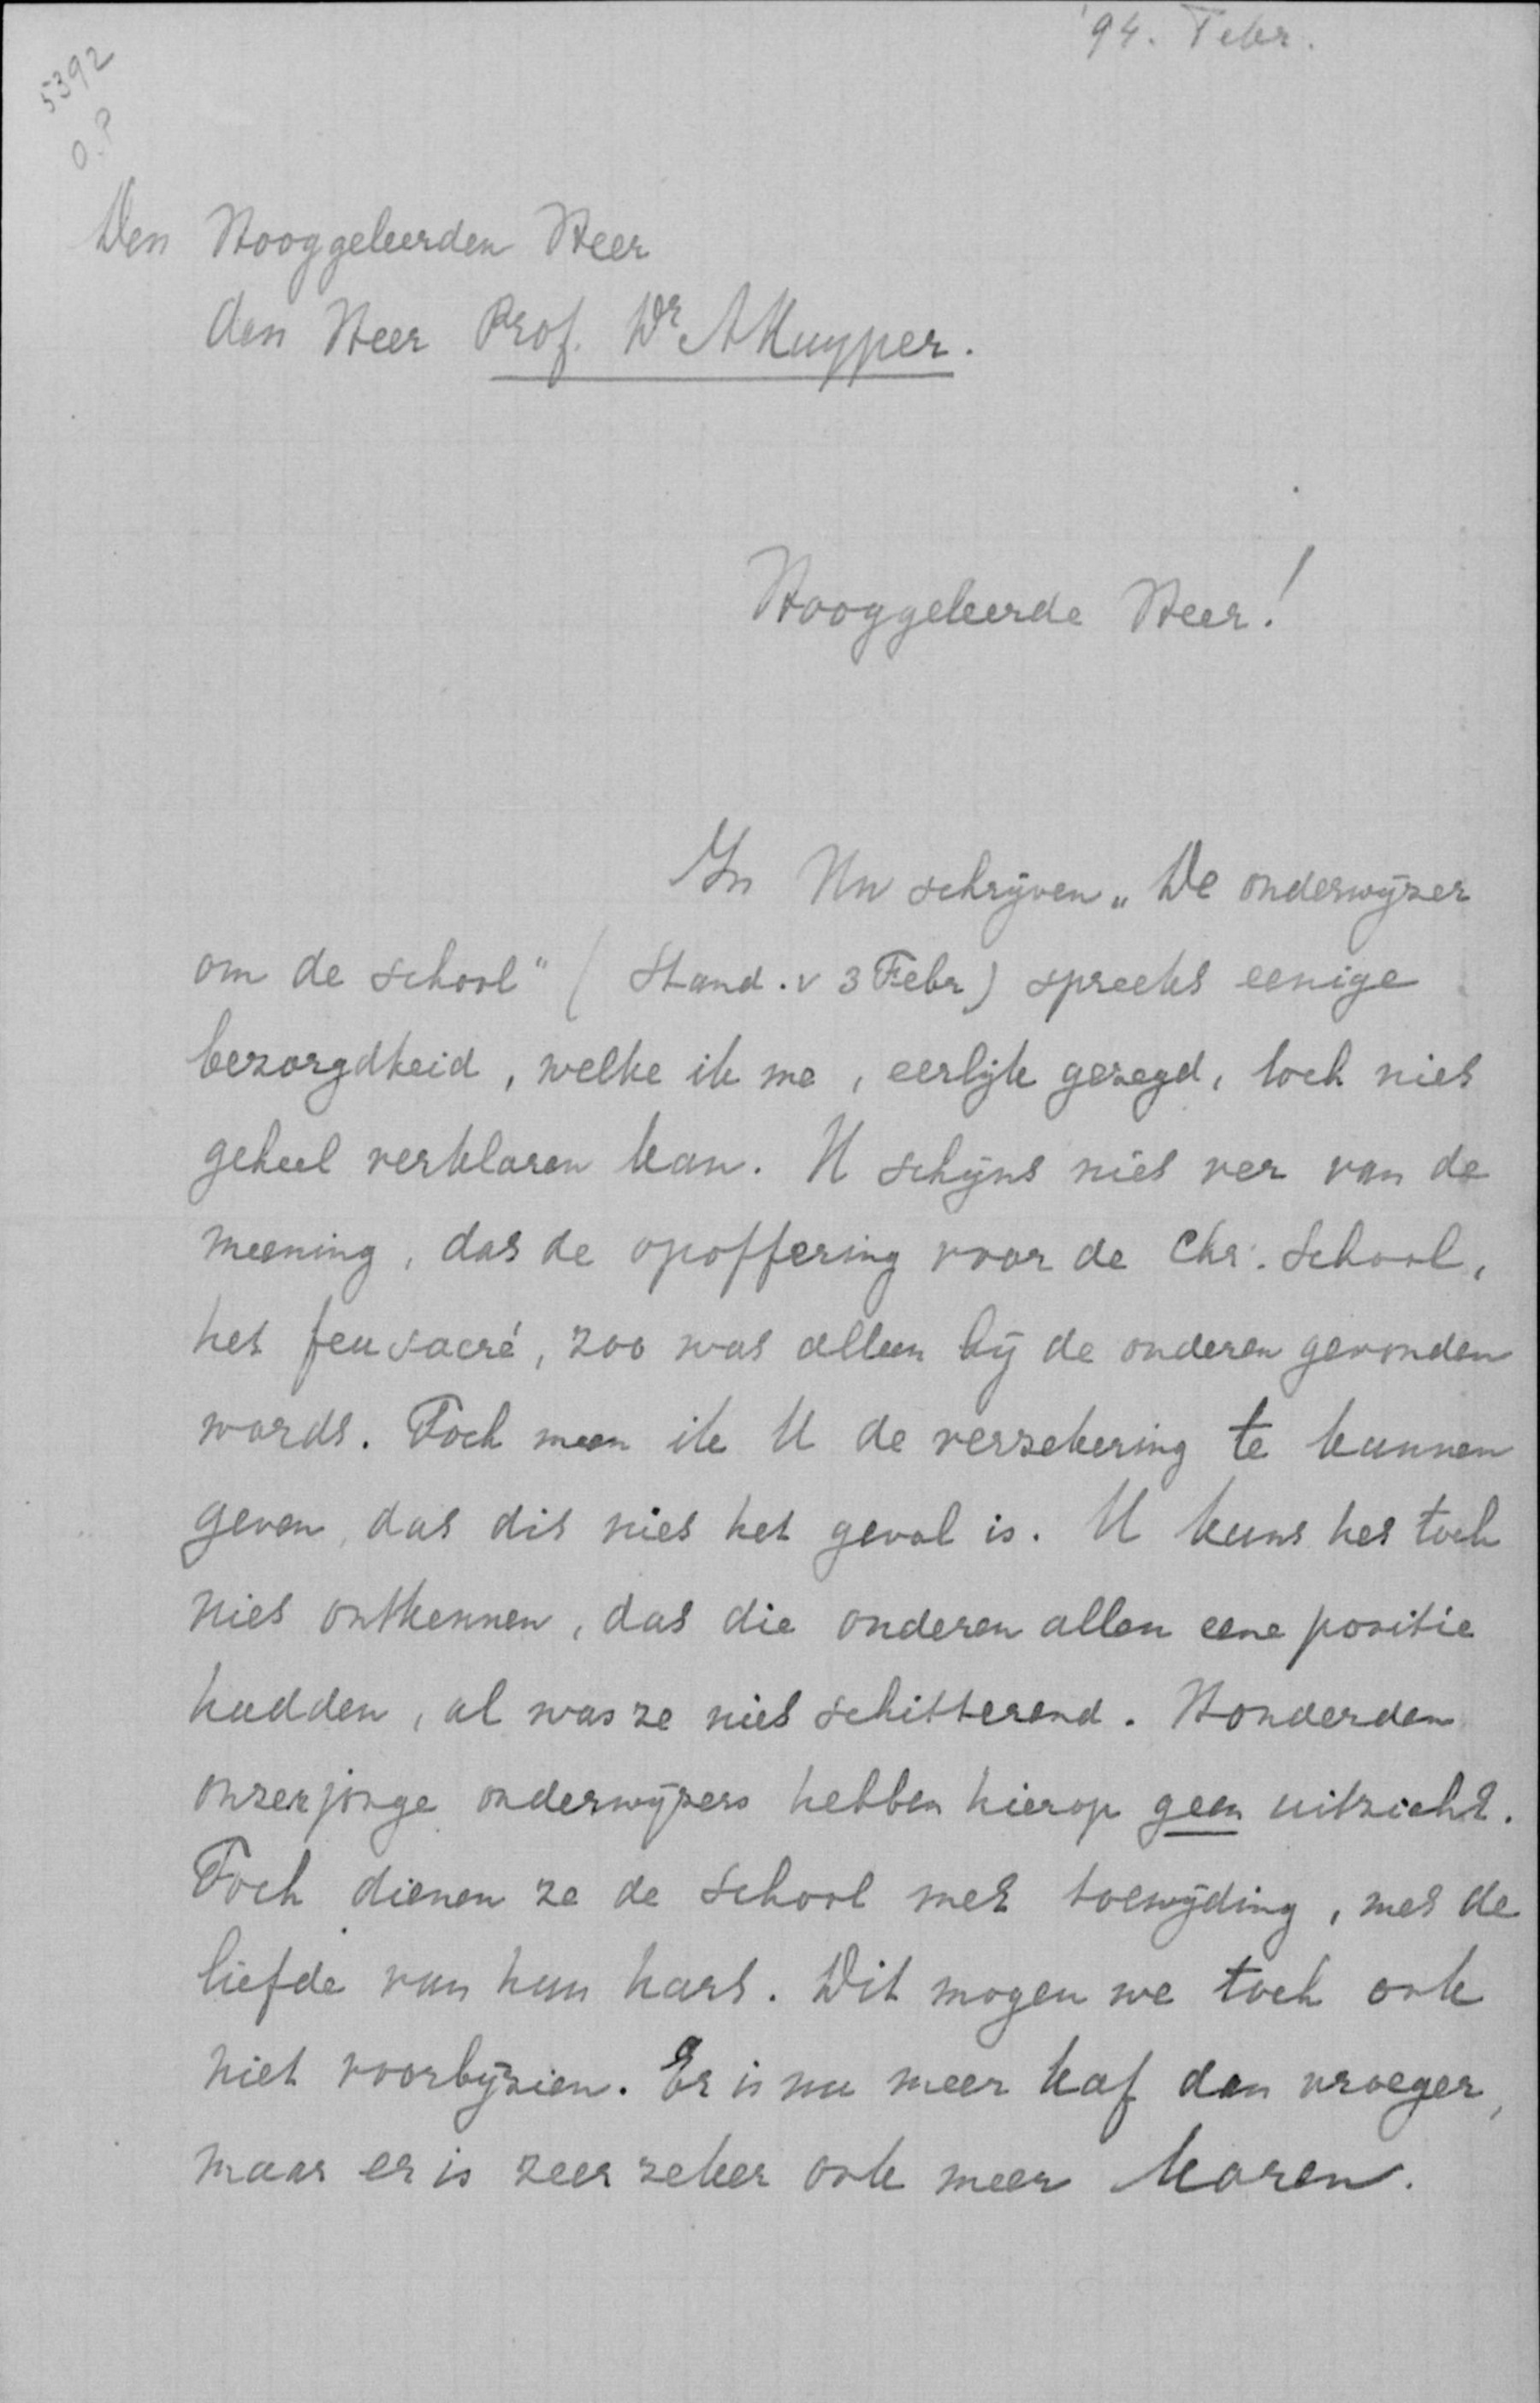 '94. Febr.
5392
O.P
Den Hooggeleerden Heer
den Heer Prof. Dr A Kuyper.
Hooggeleerde Heer!
In Uw schrijven „De onderwijzer
om de school" (Stand. v 3 Febr) spreekt eenige
bezorgdheid, welke ik me, eerlijk gezegd, toch niet
geheel verklaren kan. U schijnt niet ver van de
meening, dat de opoffering voor de Chr. School,
het feu sacré, zoo wat alleen bij de ouderen gevonden
wordt. Toch meen ik U de verzekering te kunnen
geven, dat dit niet het geval is. U kunt het toch
niet ontkennen, dat die ouderen allen eene positie
hadden, al was ze niet schitterend. Honderden
onzer jonge onderwijzers hebben hierop geen uitzicht.
Toch dienen ze de School met toewijding, met de
liefde van hun hart. Dit mogen we toch ook
niet voorbijzien. Er is nu meer kaf dan vroeger,
maar er is zeer zeker ook meer koren.